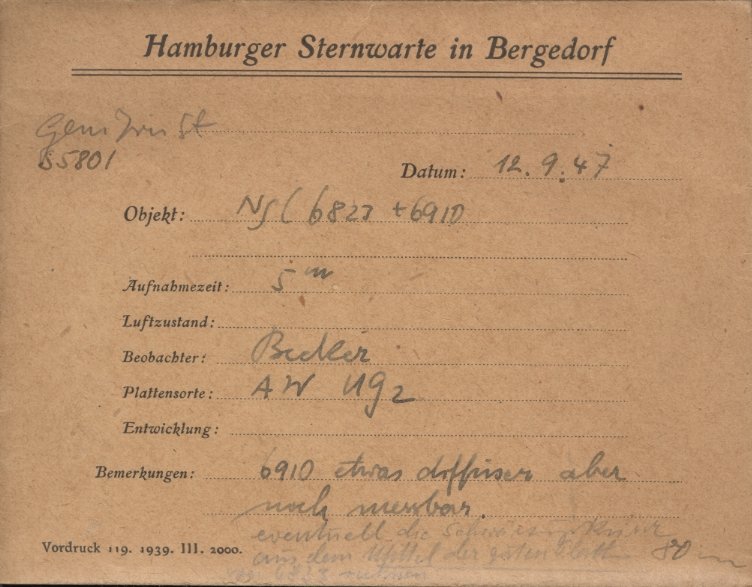 Hamburger Sternwarte in Bergedorf
S5801
Datum: 12. 9. 47
Objekt: NGC 6823 + 6910
Aufnahmezeit: 5 m
Luftzustand:
Beobachter: Becker
Plattensorte: AW UG2
Entwicklung:
Bemerkungen: 6910 etwas diffuser aber
noch messbar.
eventuell die
aus dem Mittel der guten
Vordruck 119. 1939. III. 2000.